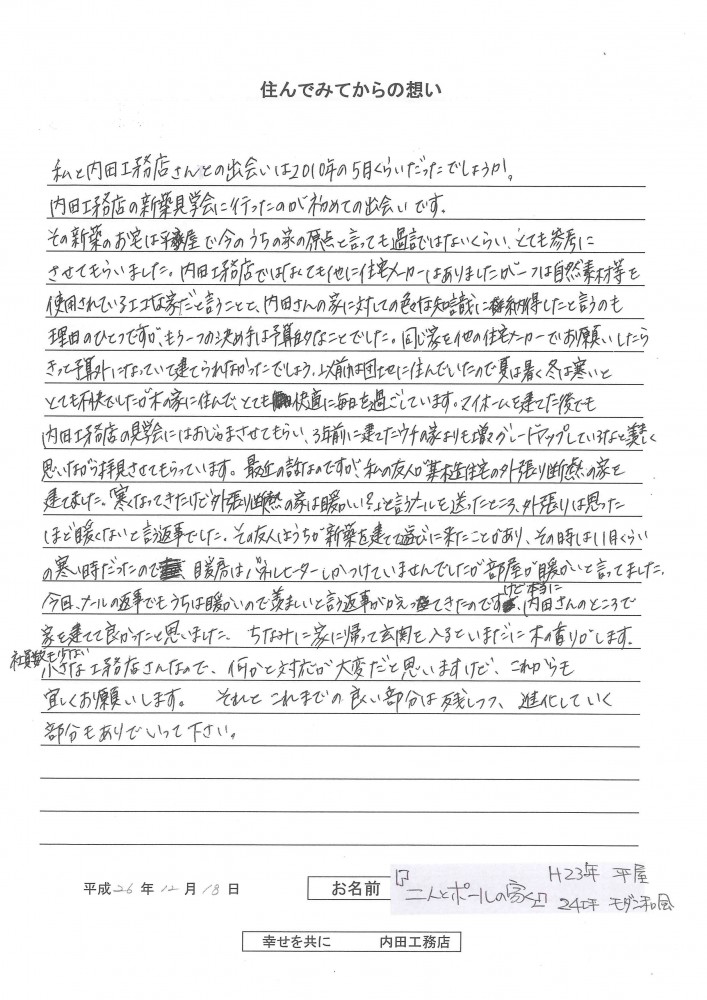 住んでみてからの想い
私と内田工務店さんとの出会いは2010年の5月くらいだったでしょうか。
内田工務店の新築見学会に行ったのが初めての出会いです。
その新築のお宅は平屋で今のうちの家の原点と言っても過言ではないくらい、とても参考に
させてもらいました。内田工務店ではなくても他に住宅メーカーはありましたが一つは自然素材等を
使用されているエコな家だと言うことと、内田さんの家に対しての色々な知識に納得したと言うのも
理由のひとつですが、もう一つの決め手は予算的なことでした。同じ家を他の住宅メーカーでお願いしたら
きっと予算外になっていて建てられなかったでしょう。以前は団地に住んでいたので夏は暑く冬は寒いと
とても不快でしたが木の家に住んで、とても快適に毎日を過ごしています。マイホームを建てた後でも
内田工務店の見学会にはおじゃまさせてもらい、3年前に建てたウチの家よりも増々グレードアップしているなと羨しく
思いながら拝見させてもらっています。最近の話なのですが、私の友人が某木造住宅の外張り断熱の家を
建てました。「寒くなってきたけど外張り断熱の家は暖かい?」と言うメールを送ったところ、外張りは思った
ほど暖くないと言う返事でした。その友人はうちが新築を建てて遊びに来たことがあり、その時は11月くらい
の寒い時だったので 暖房はパネルヒーターしかつけていませんでしたが部屋が暖かいと言ってました。
今日、メールの返事でもうちは暖かいので羨ましいと言う返事がかえってきたのですけど本当に、内田さんのところで
家を建てて良かったと思いました。ちなみに家に帰って玄関を入るといまだに木の香りがします。
社員数も少ない小さな工務店さんなので、何かと対応が大変だと思いますけど、これからも
宜しくお願いします。 それと これまでの良い部分は残しつつ、進化していく
部分もありでいって下さい。
平成26年12月18日 お名前 『二人とポールの家』 H23年 平屋
24坪 モダン和風
幸せを共に 内田工務店